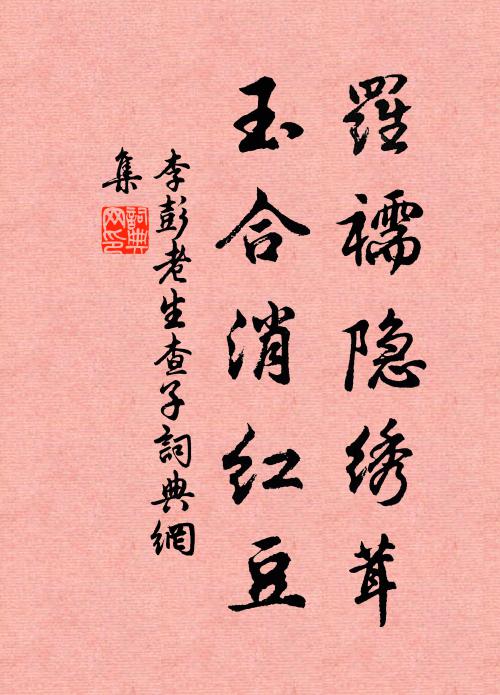 羅襦隐绣茸
玉合消红豆
李彭老生查子詞典網
集
詞典
网印